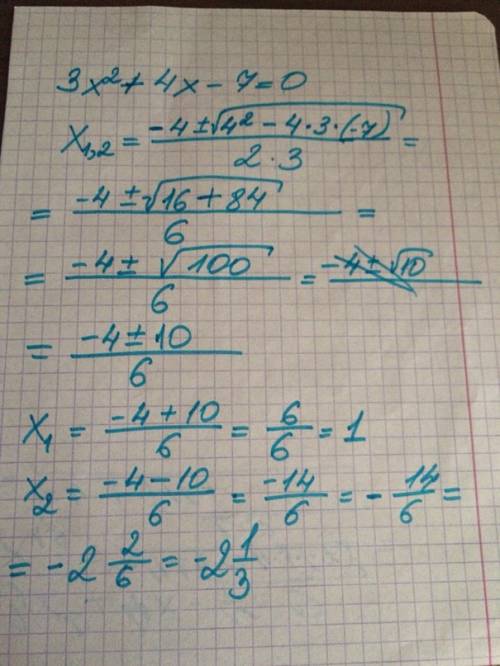 3x² + 4x - 7 = 0
x₁,₂ = (-4 ± √(4² - 4·3·(-7))) / (2·3) =
= (-4 ± √(16 + 84)) / 6 =
= (-4 ± √100) / 6 = -4 ± √10
= (-4 ± 10) / 6
x₁ = (-4 + 10) / 6 = 6/6 = 1
x₂ = (-4 - 10) / 6 = -14/6 = - 14/6 =
= -2 2/6 = -2 1/3